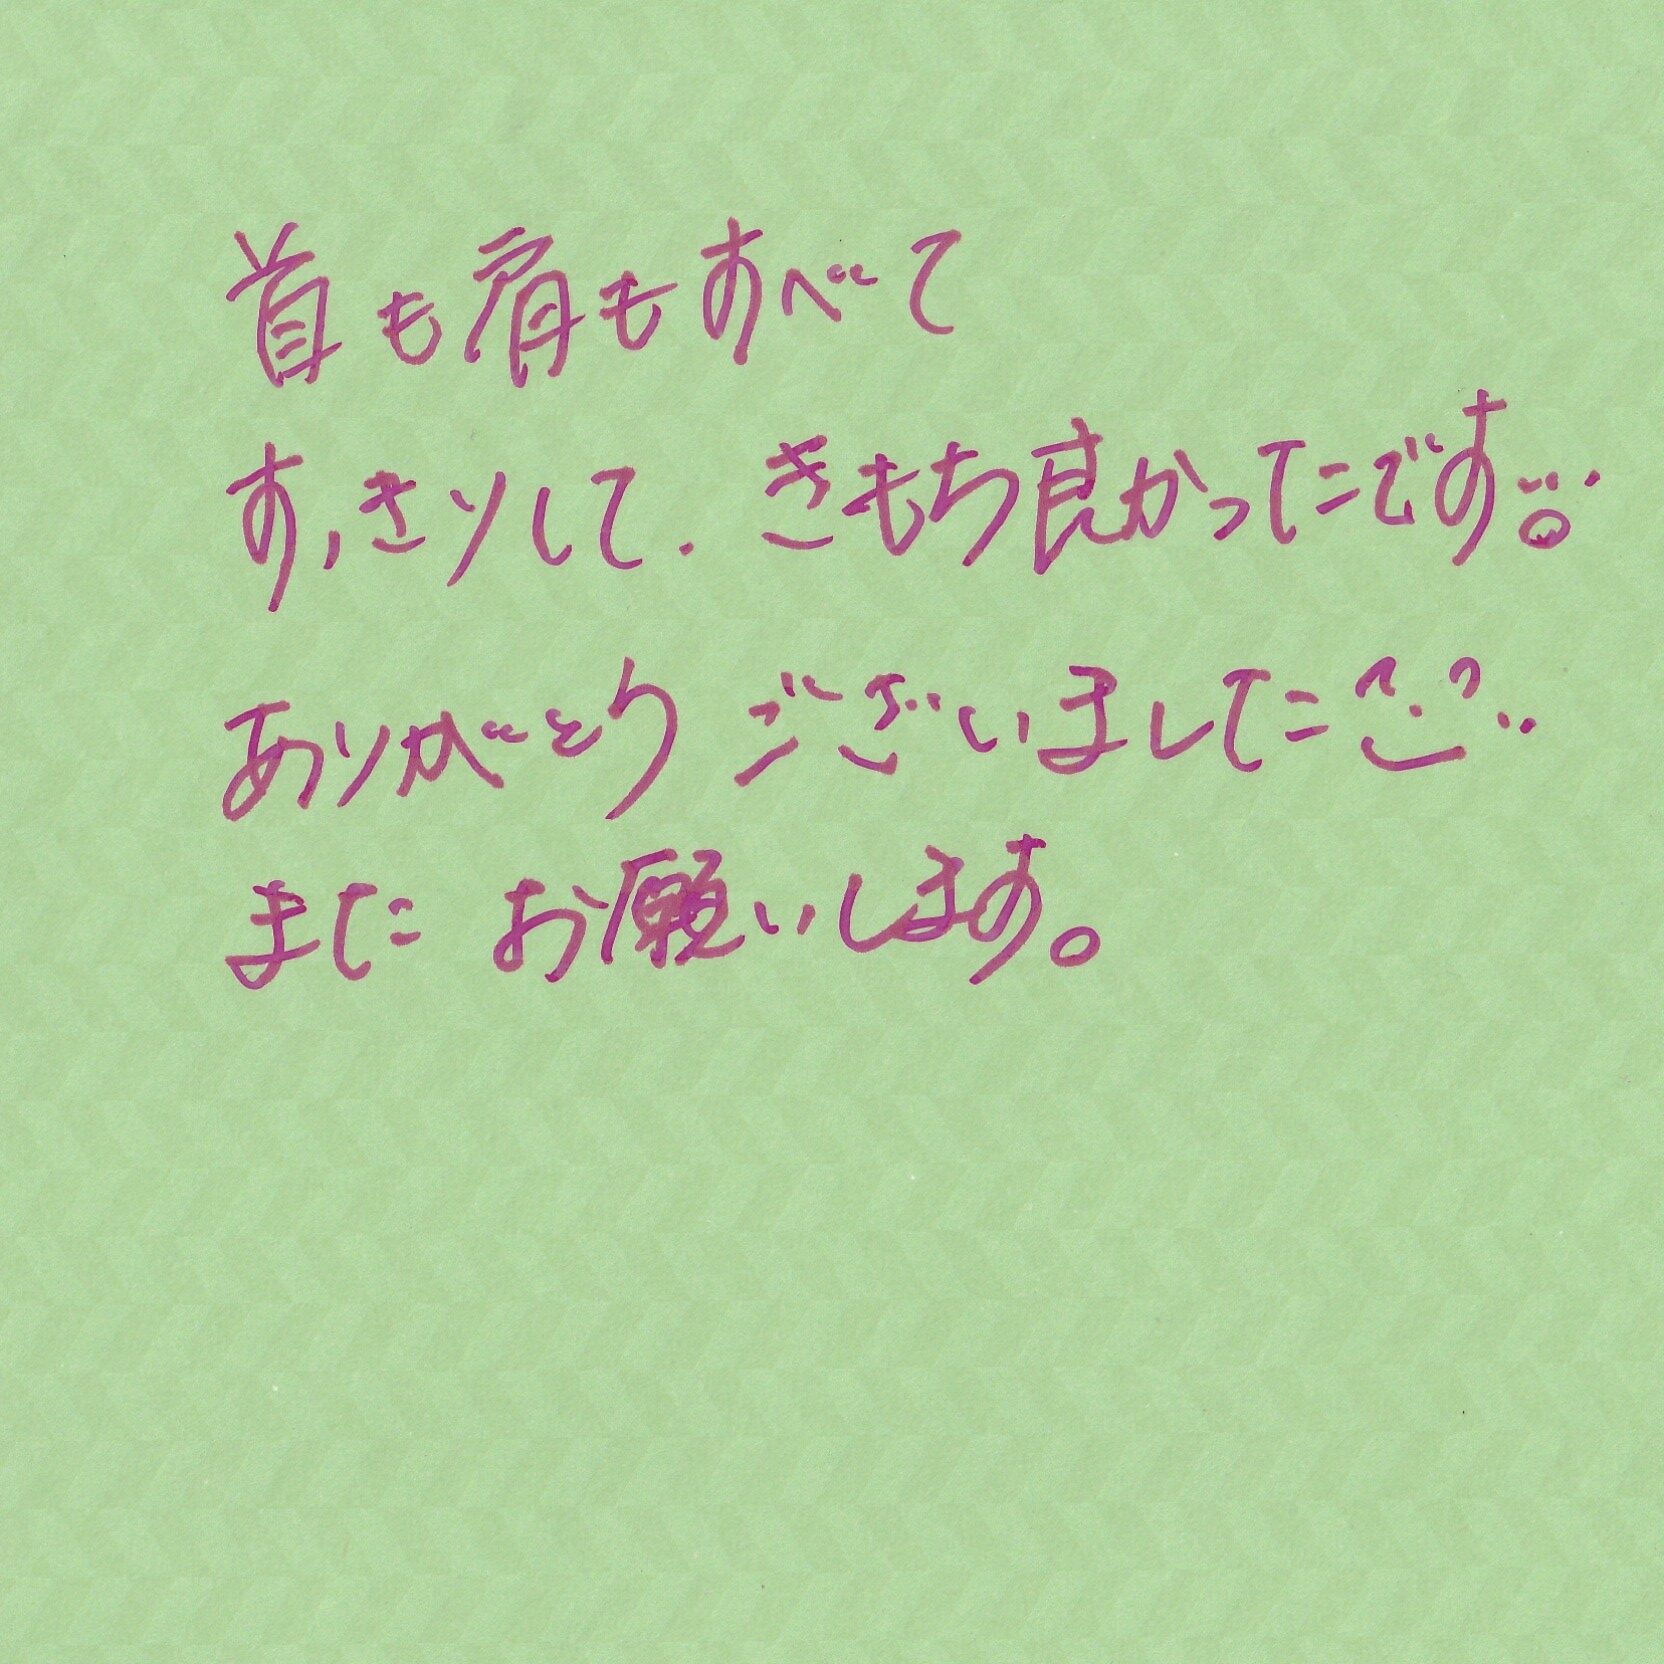 首も肩もすべて
すっきりして、きもち良かったです。
ありがとうございました
またお願いします。